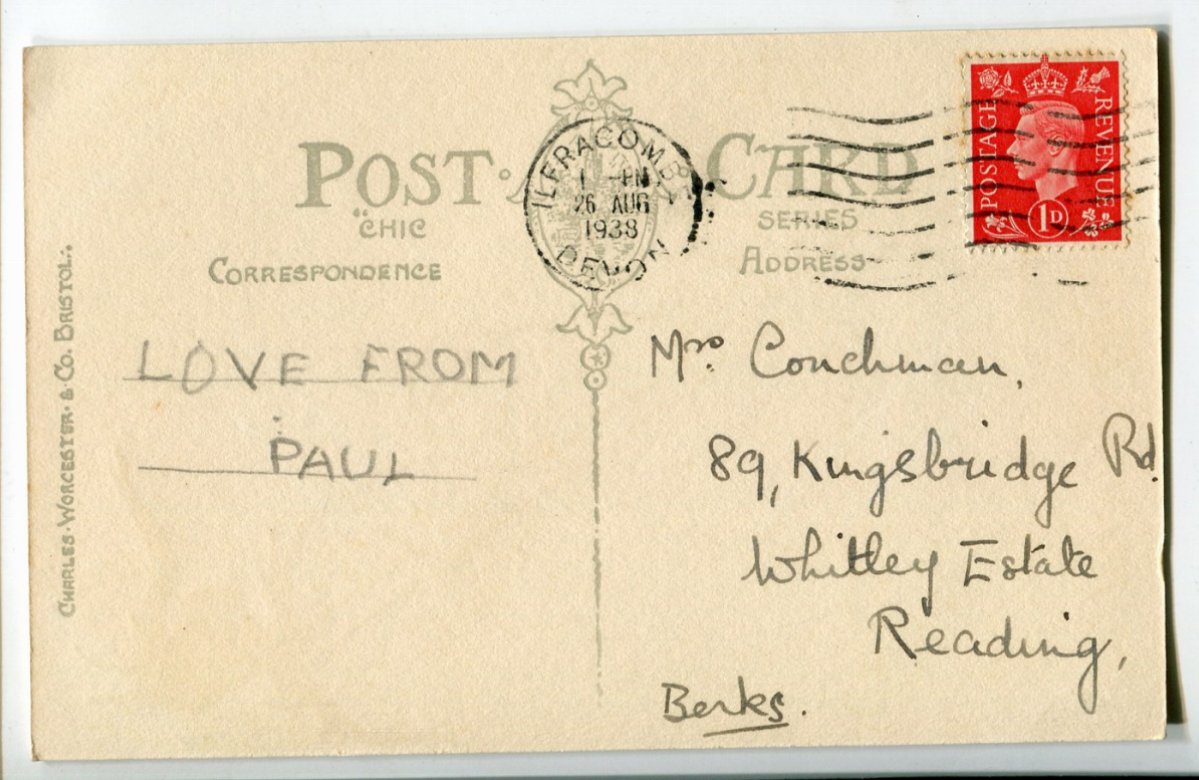 POST CARD
"CHIC SERIES
CORRESPONDENCE
ADDRESS
ILFRACOMBE
1 - PM
26 AUG
1938
DEVON
POSTAGE
REVENUE
1D
LOVE FROM
PAUL
Mrs. Couchman,
89, Kingsbridge Rd.
Whitley Estate
Reading,
Berks.
CHARLES · WORCESTER · & CO. BRISTOL.